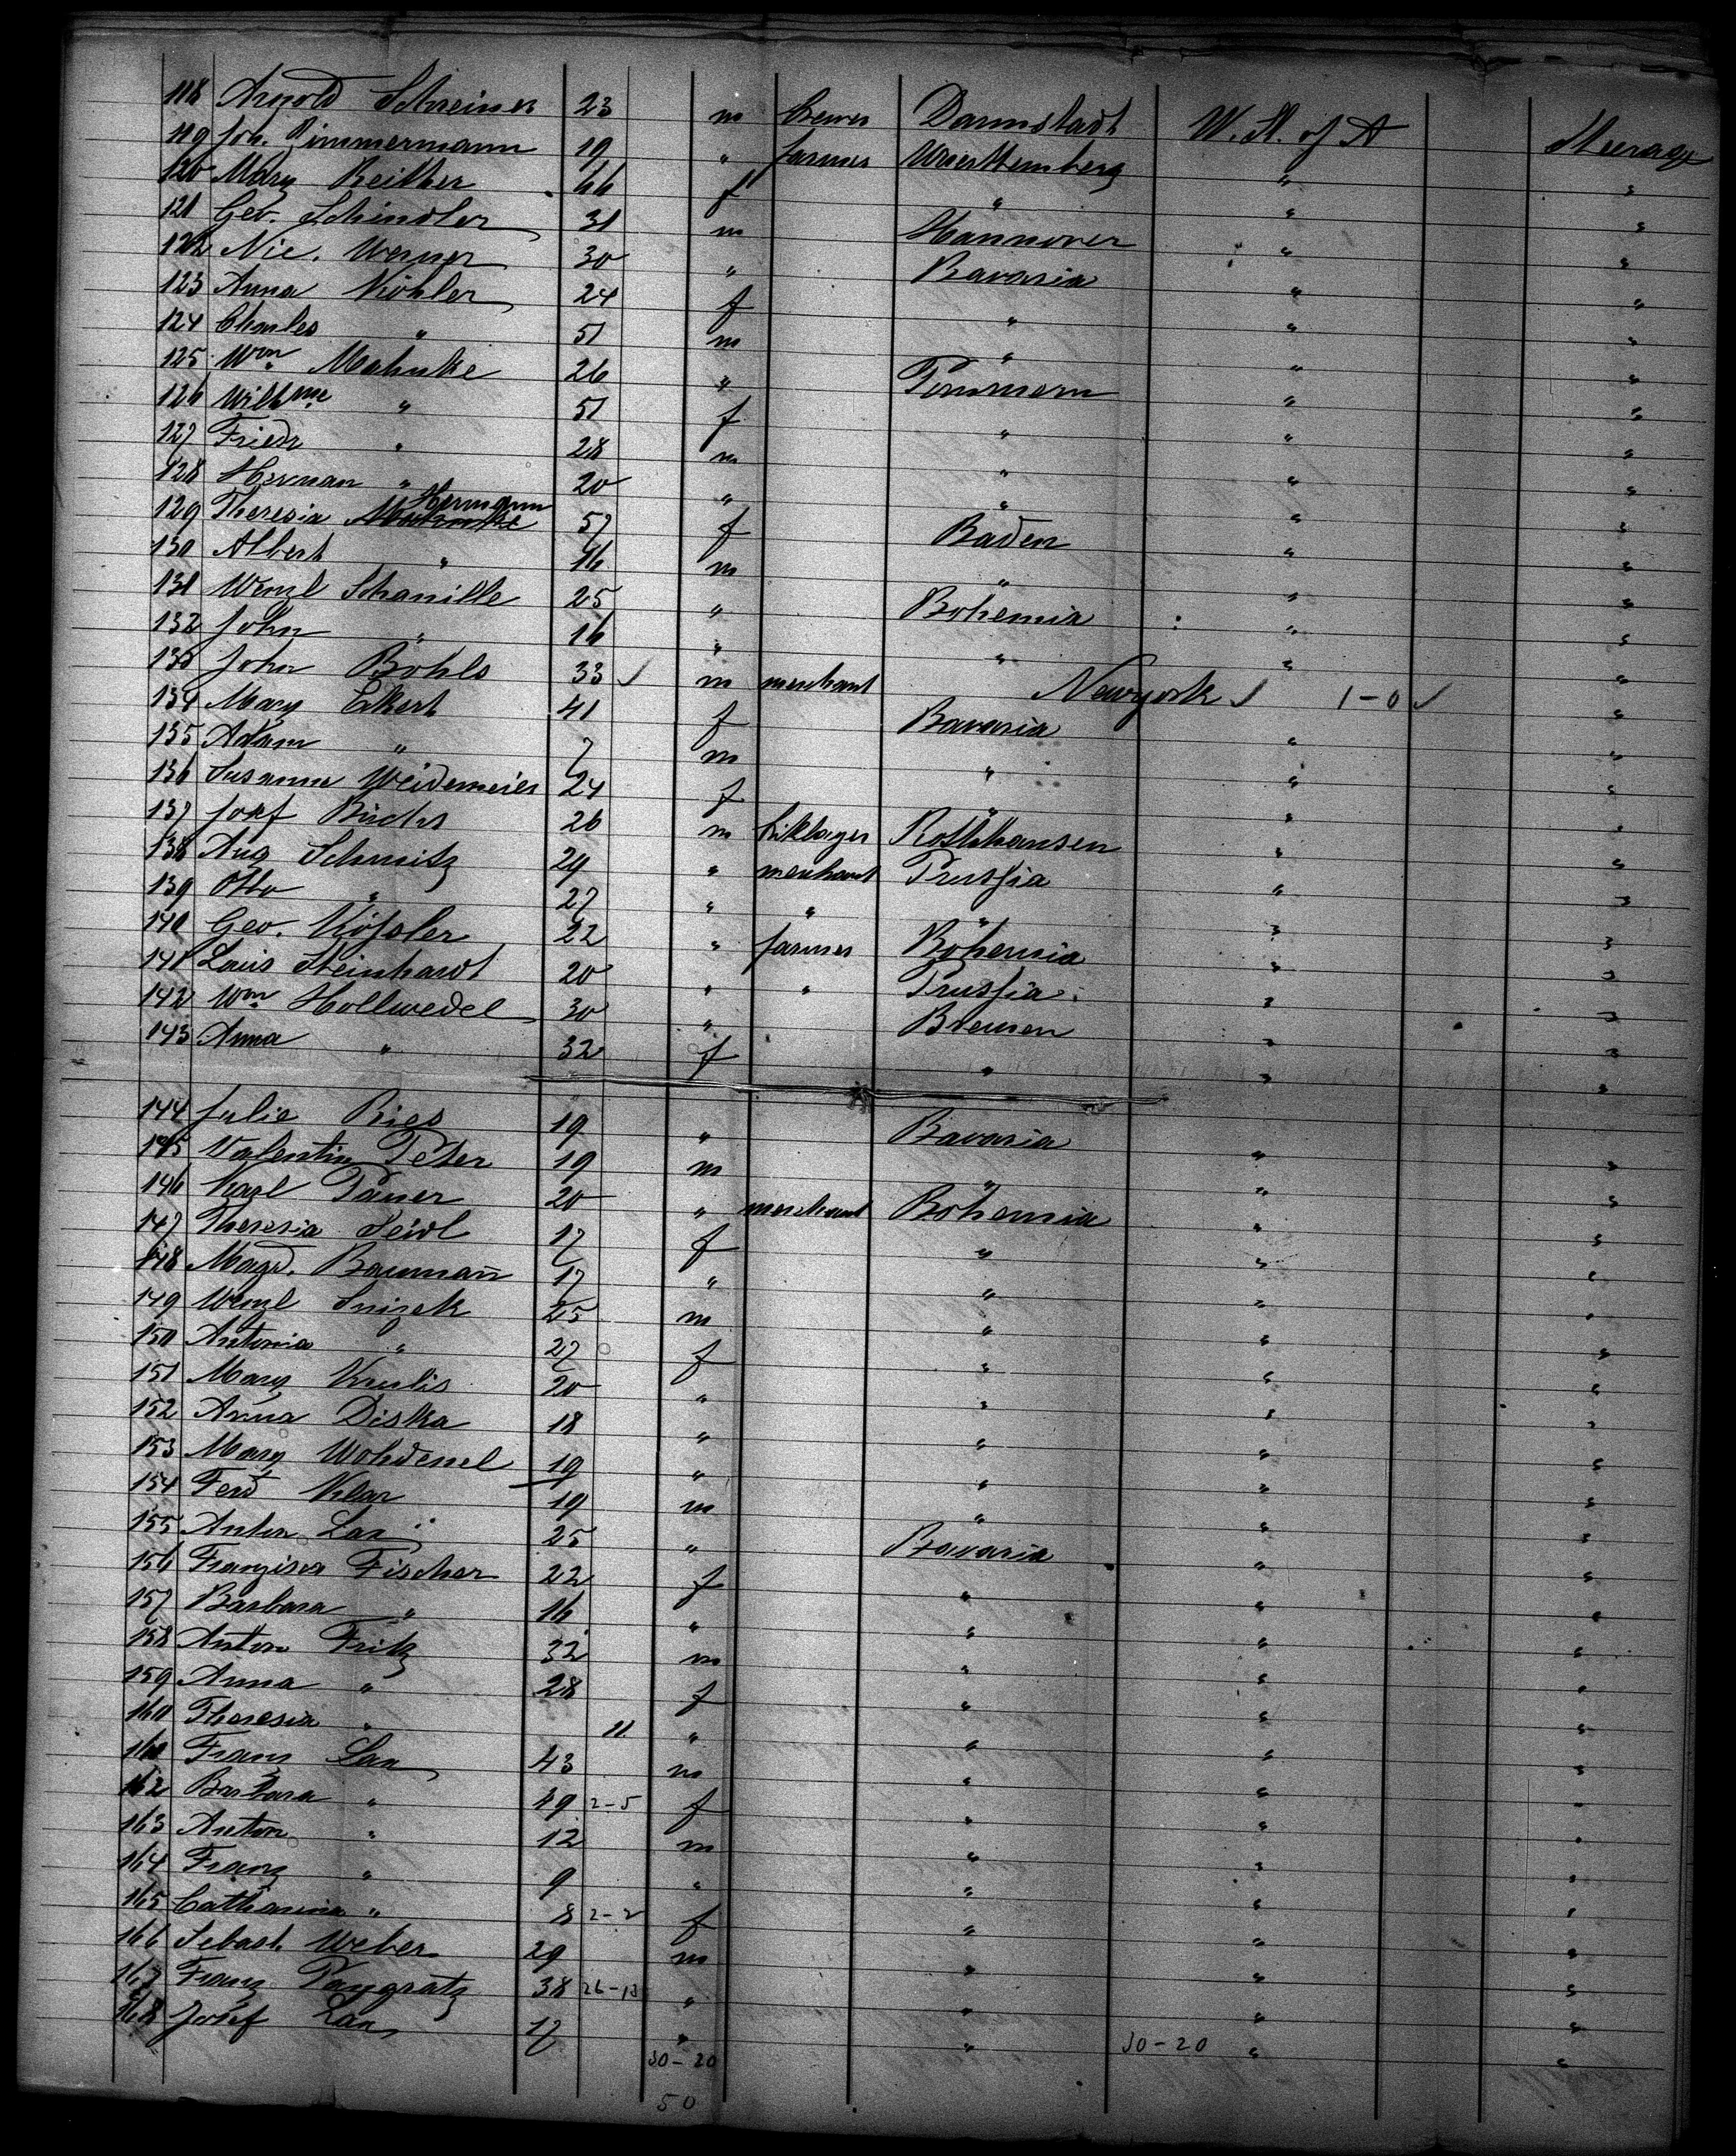 118 Arnold Schreiner 23 m brewer Darmstadt U. St. of A Steerage
119 Joh. Zimmermann 19 " farmer Wuerttemberg " "
120 Mary Reither 66 f " " "
121 Geo. Schindler 31 m Hannover " "
122 Nic. Werner 30 " Bavaria " "
123 Anna Köhler 24 f " " "
124 Charles " 51 m " " "
125 Wm Mahnke 26 " Pommern " "
126 Wilhme " 51 f " " "
127 Friedr " 28 m " " "
128 Herman " 20 " " " "
129 Theresia Mahnke Hermann 57 f Baden " "
130 Albert " 16 m " " "
131 Wenzl Schanille 25 " Bohemia " "
132 John " 16 " " " "
133 John Bohls 33 ✓ m merchant Newyork ✓ 1-0 ✓ "
134 Mary Ekert 41 f Bavaria " "
135 Adam " 7 m " " "
136 Susanna Weidemeier 24 f " " "
137 Josef Büchs 26 m briklayer Rottshausen " "
138 Aug Schmitz 29 " merchant Prussia " "
139 Otto " 27 " " " " "
140 Geo. Kössler 22 " farmer Bohemia " "
141 Louis Steinhardt 20 " " Prussia " "
142 Wm Hollwedel 30 " Bremen " "
143 Anna " 32 f " " "
144 Julie Ries 19 " Bavaria " "
145 Valentin Peter 19 m " " "
146 Karl Pauer 20 " merchant Bohemia " "
147 Theresia Seidl 17 f " " "
148 Magd. Baumann 17 " " " "
149 Wenzl 25 m " " "
150 Antonia " 27 f " " "
151 Mary Krulis 20 " " " "
152 Anna Diska 18 " " " "
153 Mary 19 " " " "
154 Ferd Klar 19 m " " "
155 Anton Lax 25 " Bavaria " "
156 Franzisca Fischer 22 f " " "
157 Barbara " 16 " " " "
158 Anton Fritz 32 m " " "
159 Anna " 28 f " " "
160 Theresia " 11 " " " "
161 Franz Lax 43 m " " "
162 Barbara " 49 2-5 f " " "
163 Anton " 12 m " " "
164 Franz " 9 " " " "
165 Catharina " 8 2-2 f " " "
166 Sebast. Weber 29 m " " "
167 Franz Pangratz 38 26-13 " " " "
168 Josef Lax 17 " " " "
30-20 30-20
50